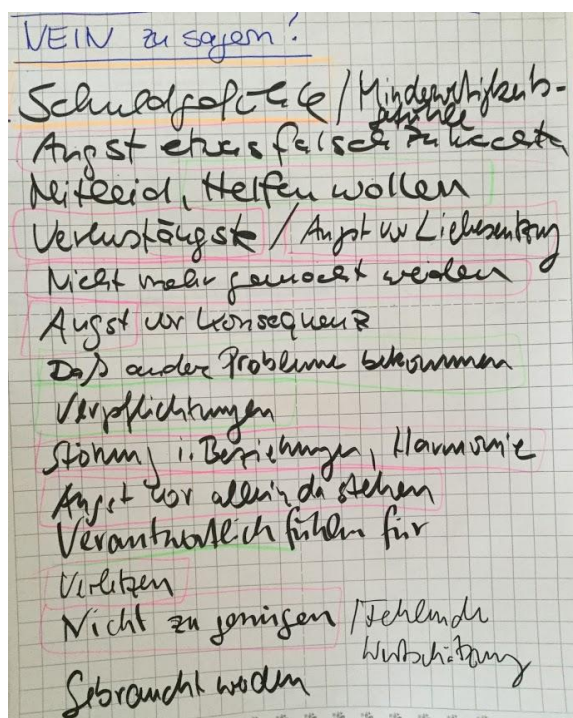 NEIN zu sagen!
Schuldgefühle / Minderwertigkeits-
gefühle
Angst etwas falsch zu machen
Mitleid, Helfen wollen
Verlustängste / Angst vor Liebesentzug
Nicht mehr gemocht werden
Angst vor Konsequenz
Daß andere Probleme bekommen
Verpflichtungen
Störung i. Beziehungen, Harmonie
Angst vor allein da stehen
Verantwortlich fühlen für
Verletzen
Nicht zu genügen / Fehlende
Wertschätzung
Gebraucht werden